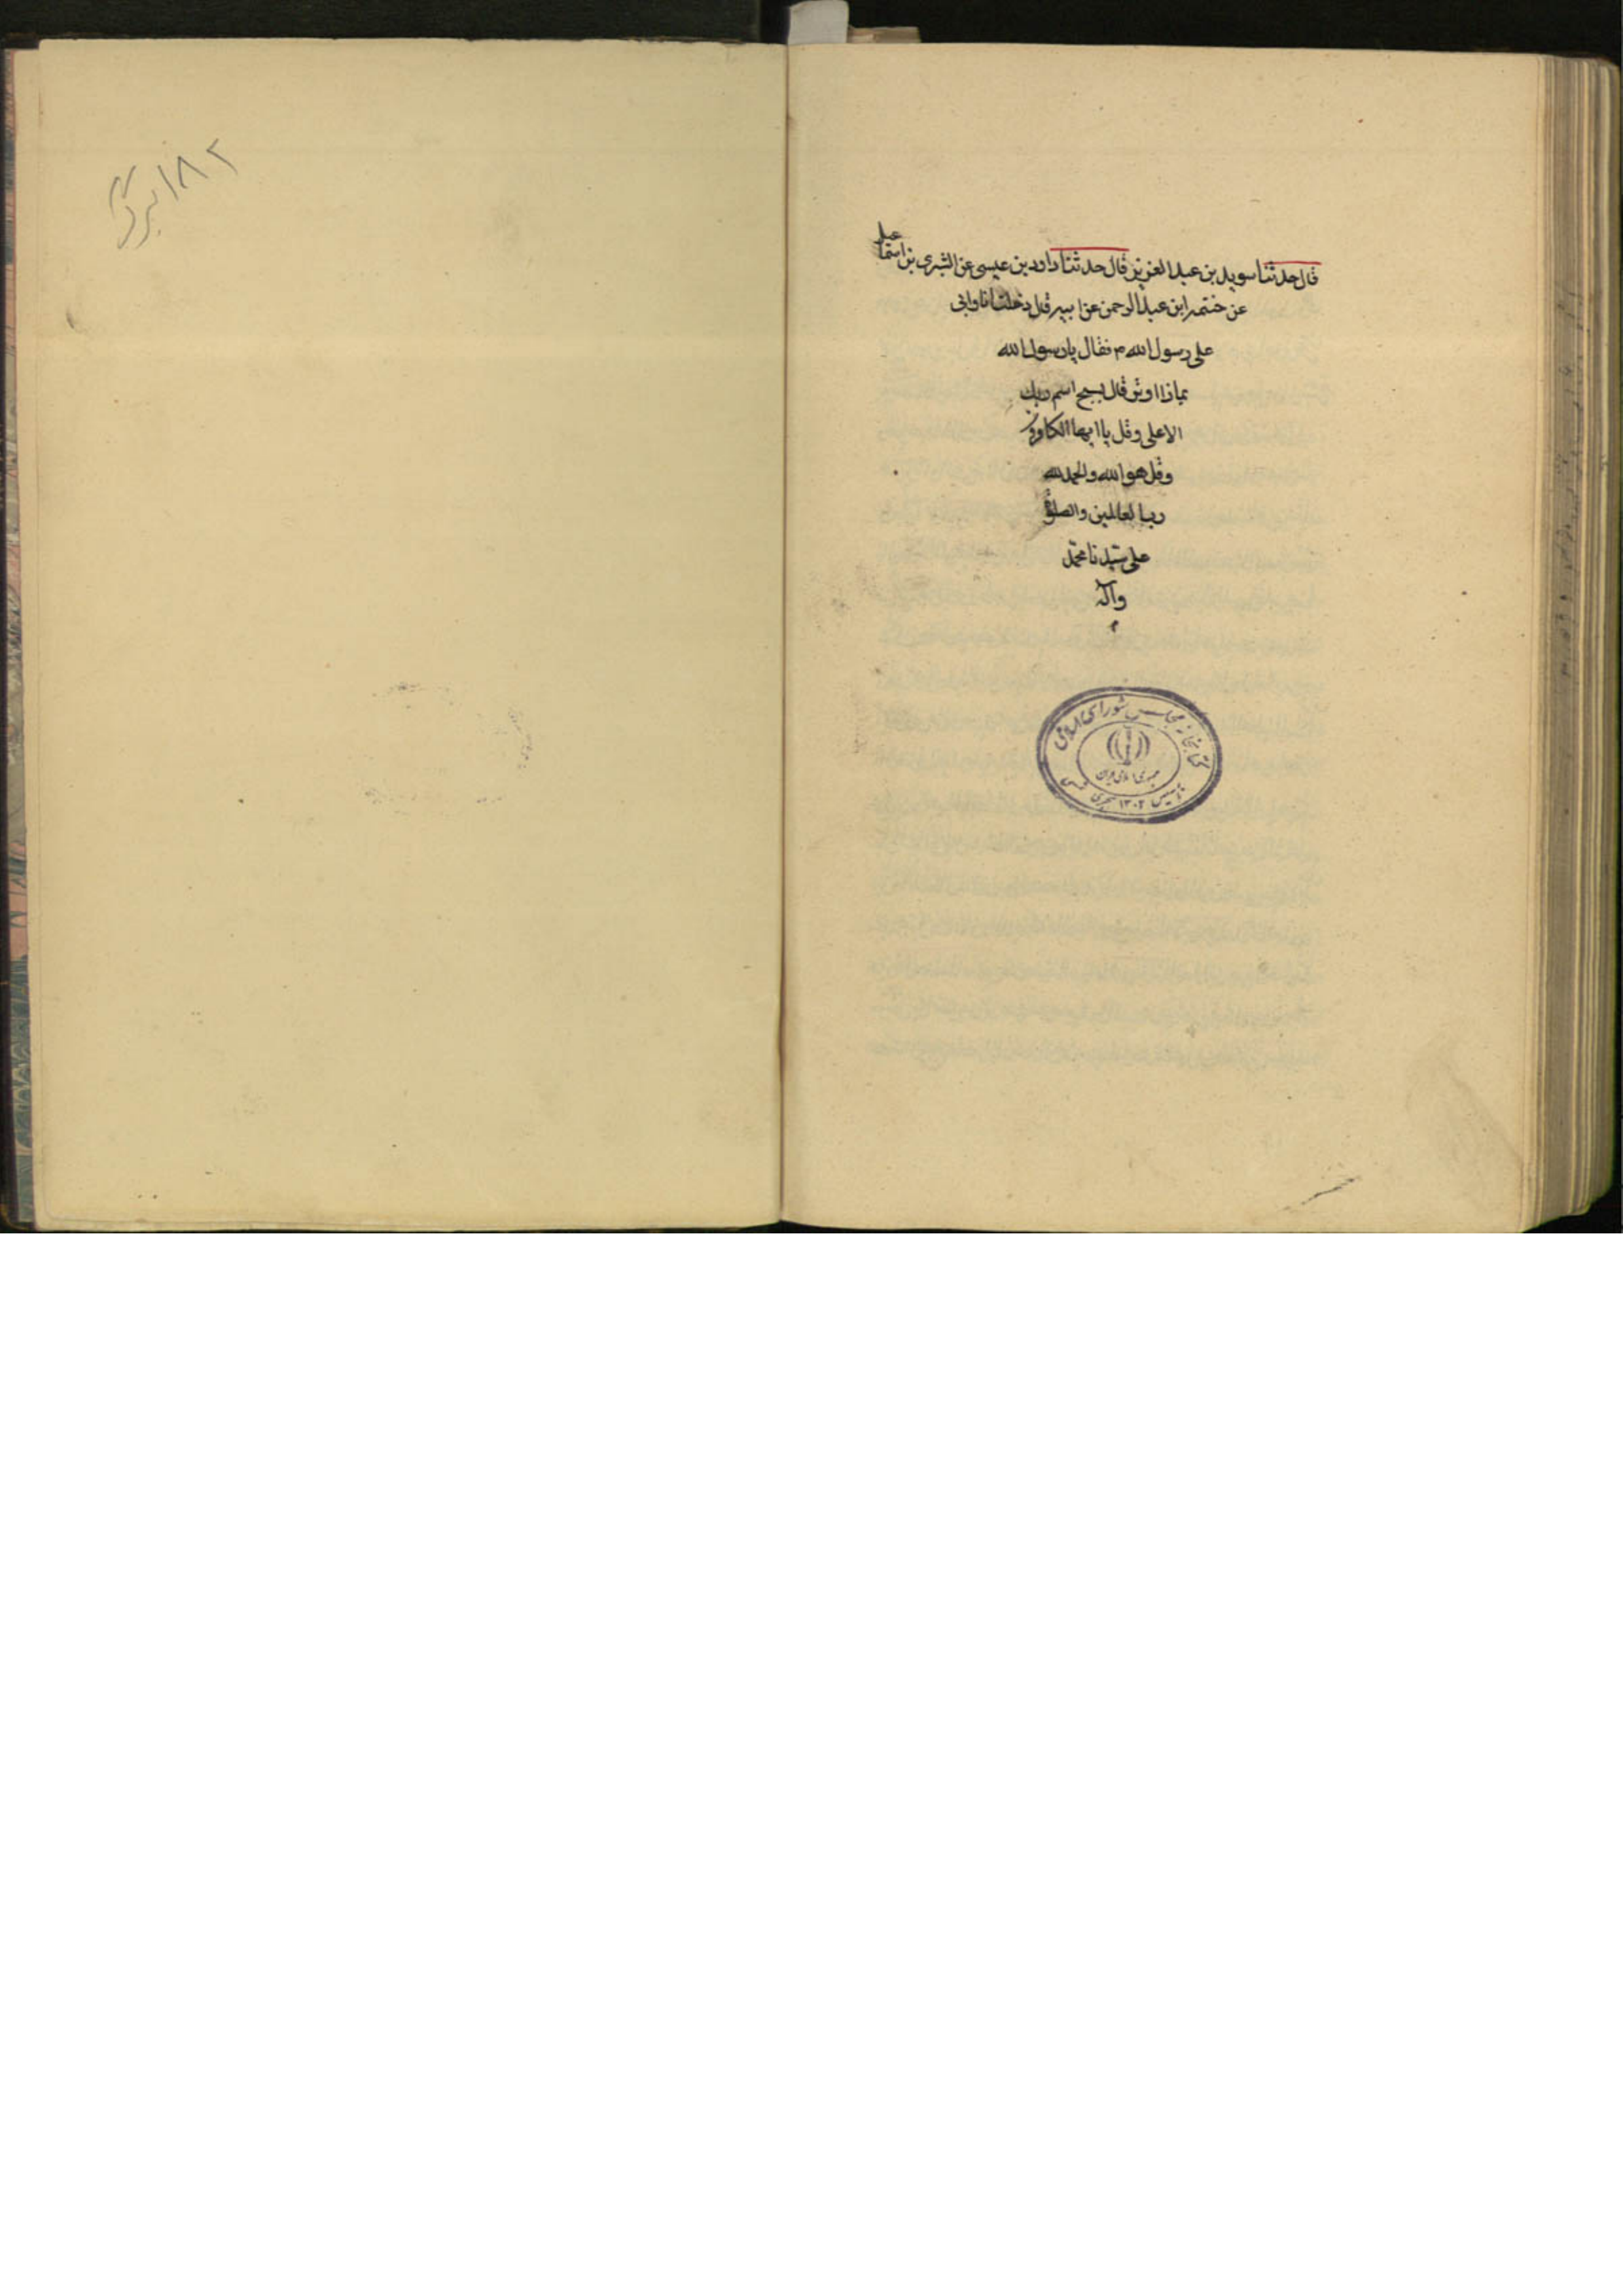 قال حدثنا سويد بن عبد العزيز قال حدثنا داود بن عيسى عن الشرى بن اسماعيل
عن خثمه ابن عبد الرحمن عن ابيه قال دخلت انا وابى
على رسول الله م فقال يا رسول الله
بماذا اوتر قال بسبح اسم ربك
الاعلى وقل يا ايها الكافرون
وقل هو الله والحمد لله
رب العالمين والصلوة
على سيدنا محمد
وآله
م
كتابخانه مجلس شوراى اسلامى
جمهورى اسلامى ايران
تأسيس ۱۳۰۲ هجرى شمسى
۱۸۲ برگ